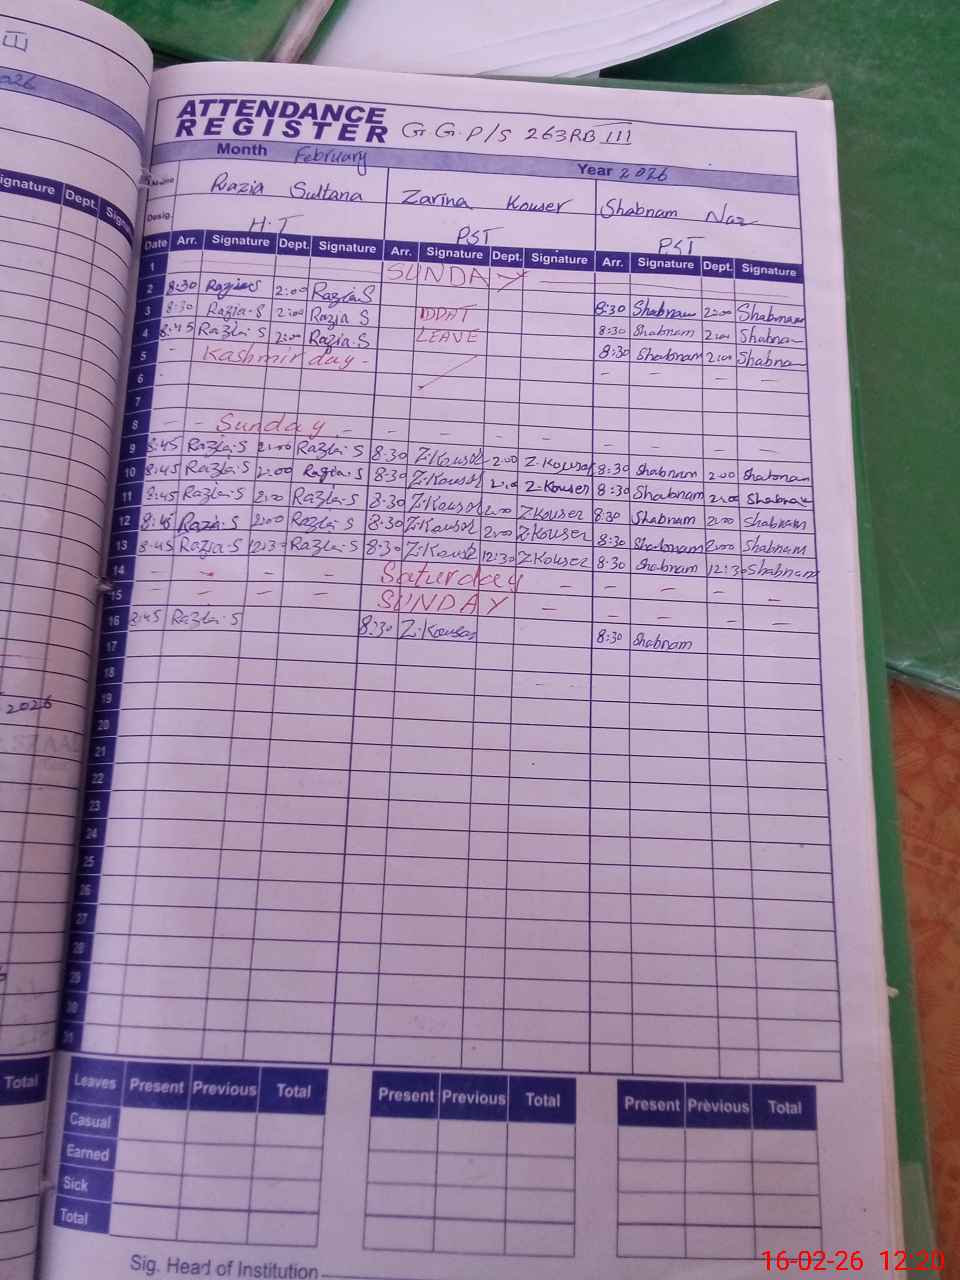 2026
Signature Dept. Signa
2026
Total
ATTENDANCE
REGISTER G G.P/S 263RB III
Month February Year 2026
Name Razia Sultana Zarina Kouser Shabnam Naz
Desig. H.T PST PST
Date Arr. Signature Dept. Signature Arr. Signature Dept. Signature Arr. Signature Dept. Signature
1 SUNDAY
2 8:30 Razia S 2:00 Razia S 8:30 Shabnam 2:00 Shabnam
3 8:30 Razia S 2:00 Razia S 8:30 Shabnam 2:00 Shabnam
4 8:45 Razia S 2:00 Razia S LEAVE 8:30 Shabnam 2:00 Shabna
5 - Kashmir day -
6
7
8 - - Sunday - - - - -
9 8:45 Razia S 2:00 Razia S 8:30 Z.Kouser 2:00 Z.Kouser 8:30 Shabnam 2:00 Shabnam
10 8:45 Razia S 2:00 Razia S 8:30 Z.Kouser 2:00 Z.Kouser 8:30 Shabnam 2:00 Shabnam
11 8:45 Razia S 2:00 Razia S 8:30 Z.Kouser 2:00 Z.Kouser 8:30 Shabnam 2:00 Shabnam
12 8:45 Razia S 2:00 Razia S 8:30 Z.Kouser 2:00 Z.Kouser 8:30 Shabnam 2:00 Shabnam
13 8:45 Razia S 12:30 Razia S 8:30 Z.Kouser 12:30 Z.Kouser 8:30 Shabnam 12:30 Shabnam
14 - - - - Saturday - - - -
15 - - - - SUNDAY - - - - -
16 8:45 Razia S 8:30 Z.Kouser 8:30 Shabnam
17
18
19
20
21
22
23
24
25
26
27
28
29
30
31
Leaves Present Previous Total Present Previous Total Present Previous Total
Casual
Earned
Sick
Total
Sig. Head of Institution
16-02-26 12:20